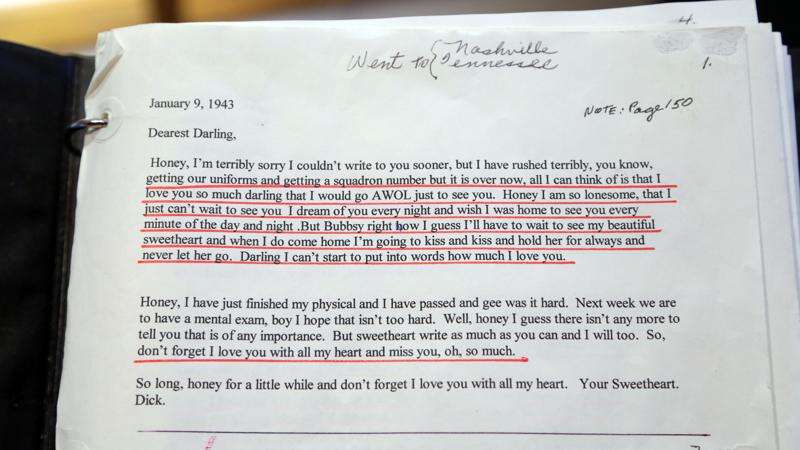 4.
Went to { Nashville
Tennessee
1.
January 9, 1943
NOTE: Page 150
Dearest Darling,
Honey, I'm terribly sorry I couldn't write to you sooner, but I have rushed terribly, you know,
getting our uniforms and getting a squadron number but it is over now, all I can think of is that I
love you so much darling that I would go AWOL just to see you.  Honey I am so lonesome, that I
just can't wait to see you  I dream of you every night and wish I was home to see you every
minute of the day and night .But Bubbsy right how I guess I'll have to wait to see my beautiful
sweetheart and when I do come home I'm going to kiss and kiss and hold her for always and
never let her go.  Darling I can't start to put into words how much I love you.
Honey, I have just finished my physical and I have passed and gee was it hard.  Next week we are
to have a mental exam, boy I hope that isn't too hard.  Well, honey I guess there isn't any more to
tell you that is of any importance.  But sweetheart write as much as you can and I will too.  So,
don't forget I love you with all my heart and miss you, oh, so much.
So long, honey for a little while and don't forget I love you with all my heart.   Your Sweetheart.
Dick.